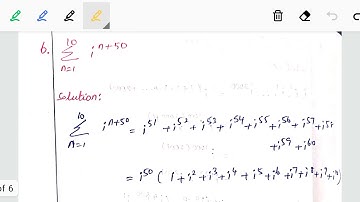 6. 10
Σ i^{n+50}
n=1
Solution:
10
Σ i^{n+50} = i^{51} + i^{52} + i^{53} + i^{54} + i^{55} + i^{56} + i^{57} + i^{58}
n=1
+ i^{59} + i^{60}
= i^{50} ( 1 + i^2 + i^3 + i^4 + i^5 + i^6 + i^7 + i^8 + i^9
of 6